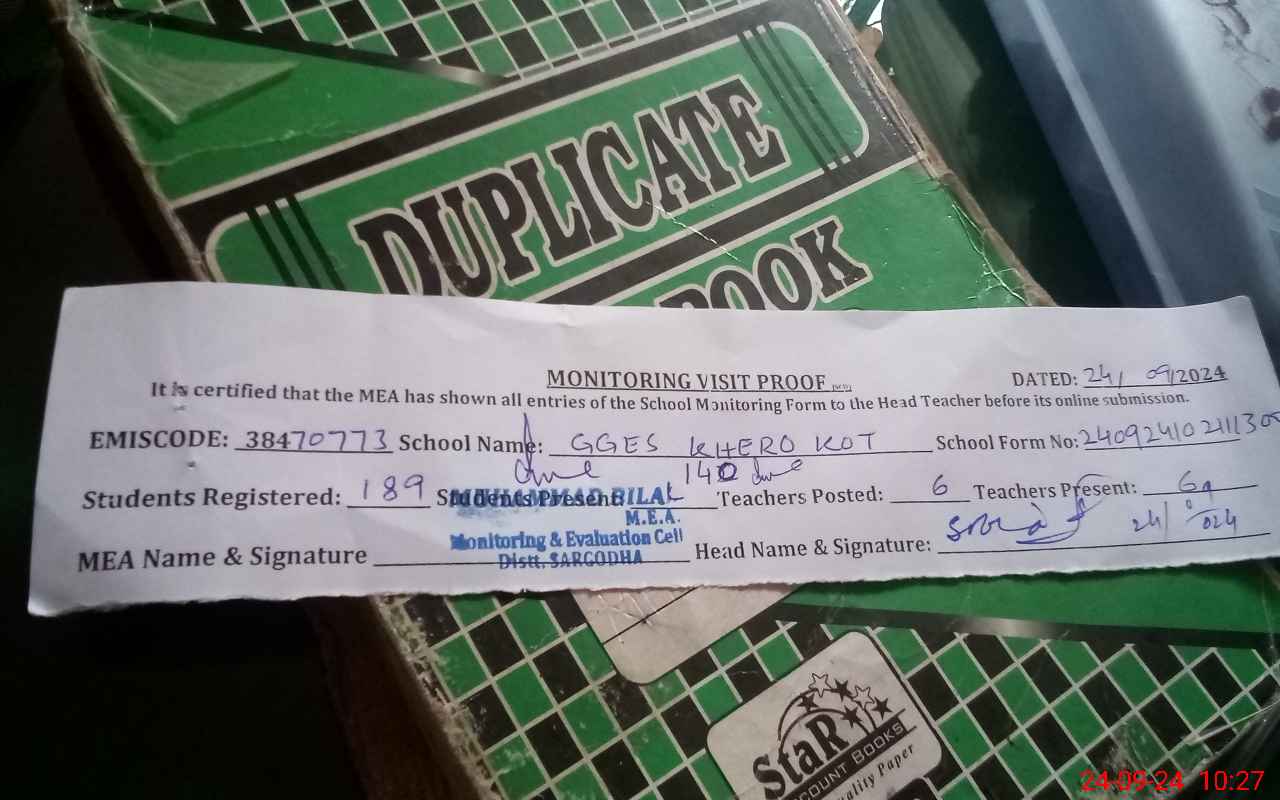 DUPLICATE
BOOK
MONITORING VISIT PROOF
DATED: 24/ 09/2024
It is certified that the MEA has shown all entries of the School Monitoring Form to the Head Teacher before its online submission.
EMISCODE: 38470773 School Name: GGES KHERO KOT School Form No:
Students Registered: 189 Students Present: 140 Teachers Posted: 6 Teachers Present:
MUHAMMAD BILAL
M.E.A.
Monitoring & Evaluation Cell
Distt. SARGODHA
MEA Name & Signature Head Name & Signature:
StaR
ACCOUNT BOOKS
Quality Paper
24-09-24 10:27